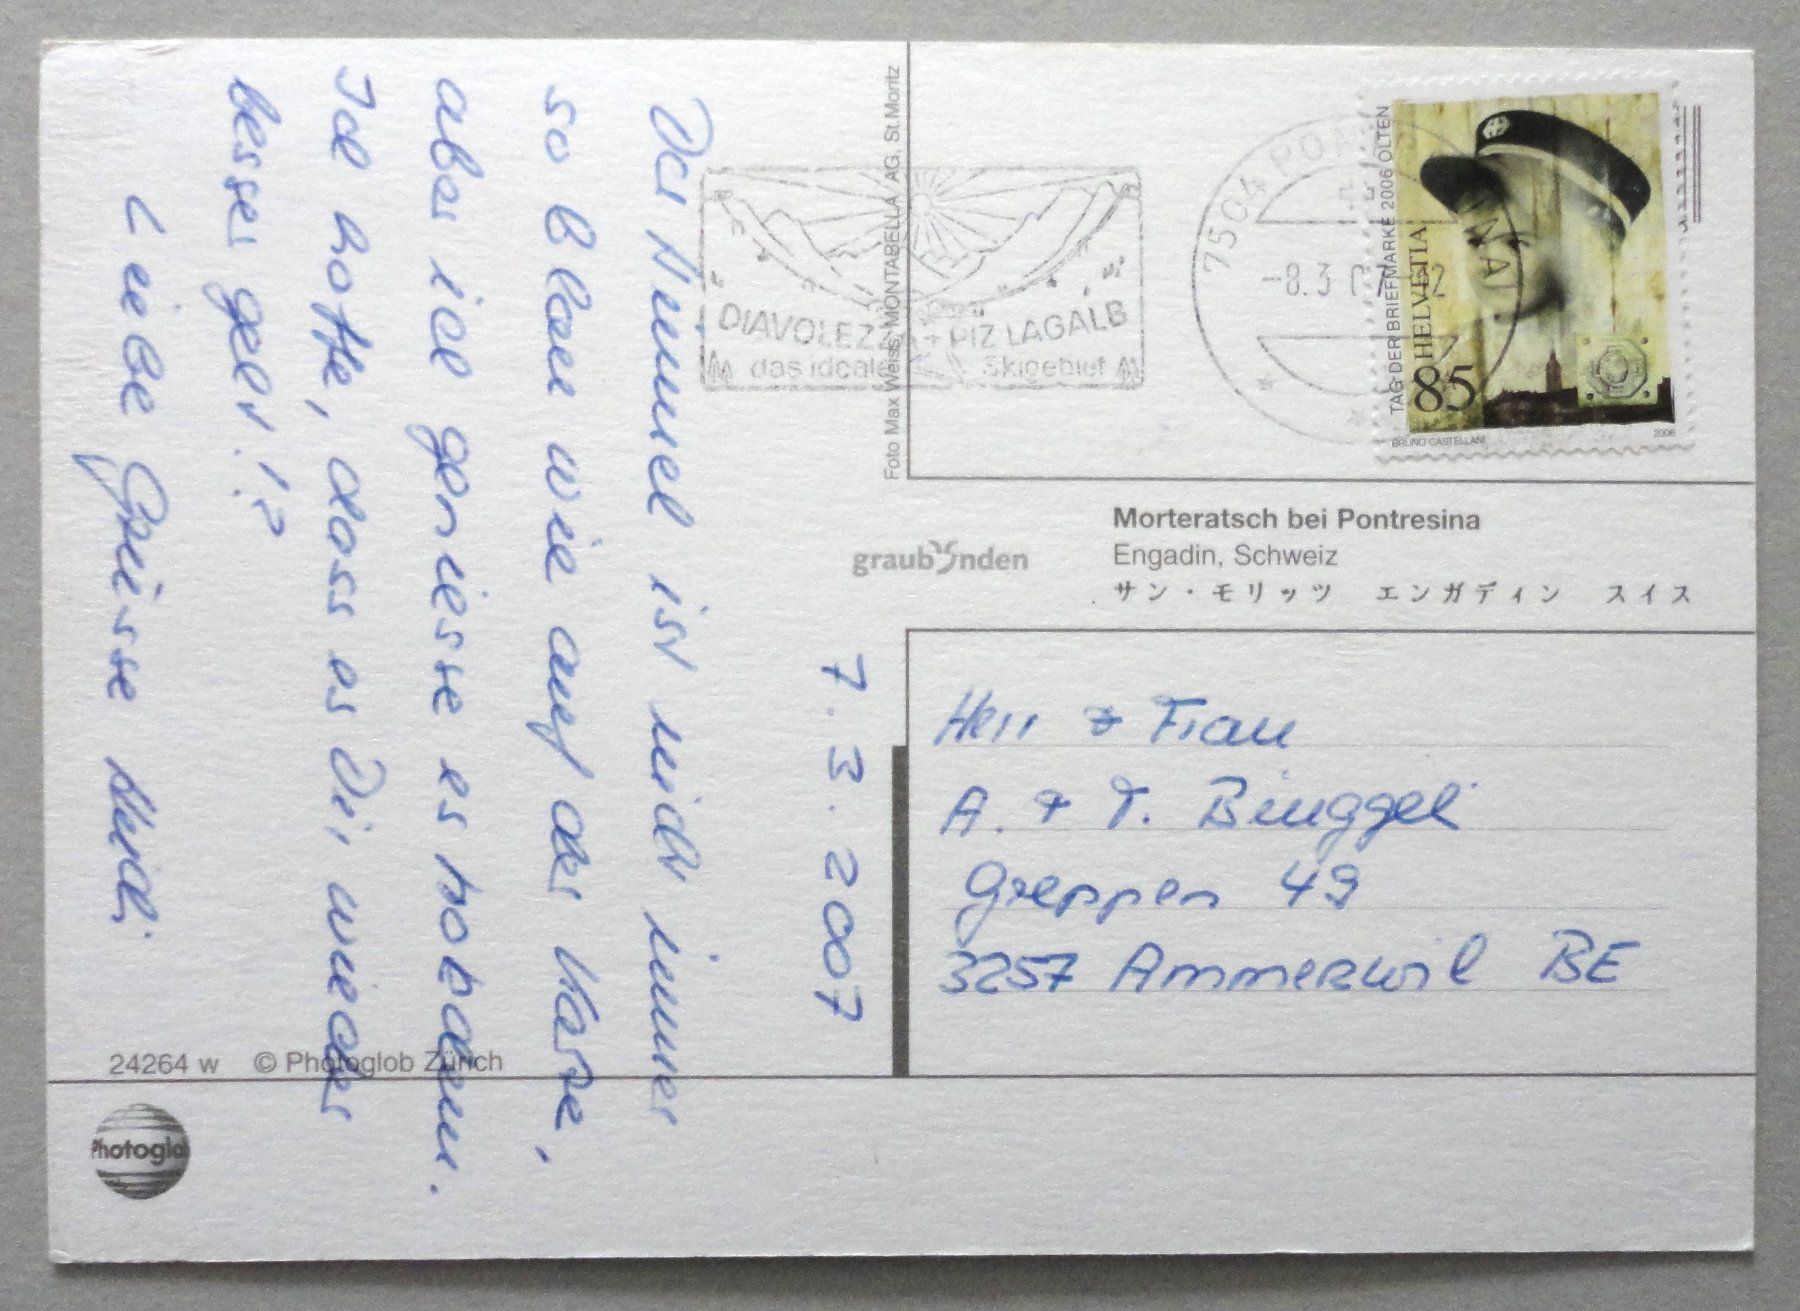 7.3.2007
Der Himmel ist nicht immer
so blau wie auf der Karte,
aber ich geniesse es trotzdem.
Ich hoffe, dass es Dir wieder
besser geht!?
Liebe Grüsse Heidi
Foto Max Weiss, MONTABELLA AG, St.Moritz
DIAVOLEZZA + PIZ LAGALB
das ideale Skigebiet
7504 PO
-8.3
TAG DER BRIEFMARKE 2006 OLTEN
HELVETIA
85
BRUNO CASTELLANI 2006
graubünden
Morteratsch bei Pontresina
Engadin, Schweiz
サン・モリッツ エンガディン スイス
Herr & Frau
A. + T. Binggeli
Greppen 49
3257 Ammerzwil BE
24264 w © Photoglob Zürich
Photoglob